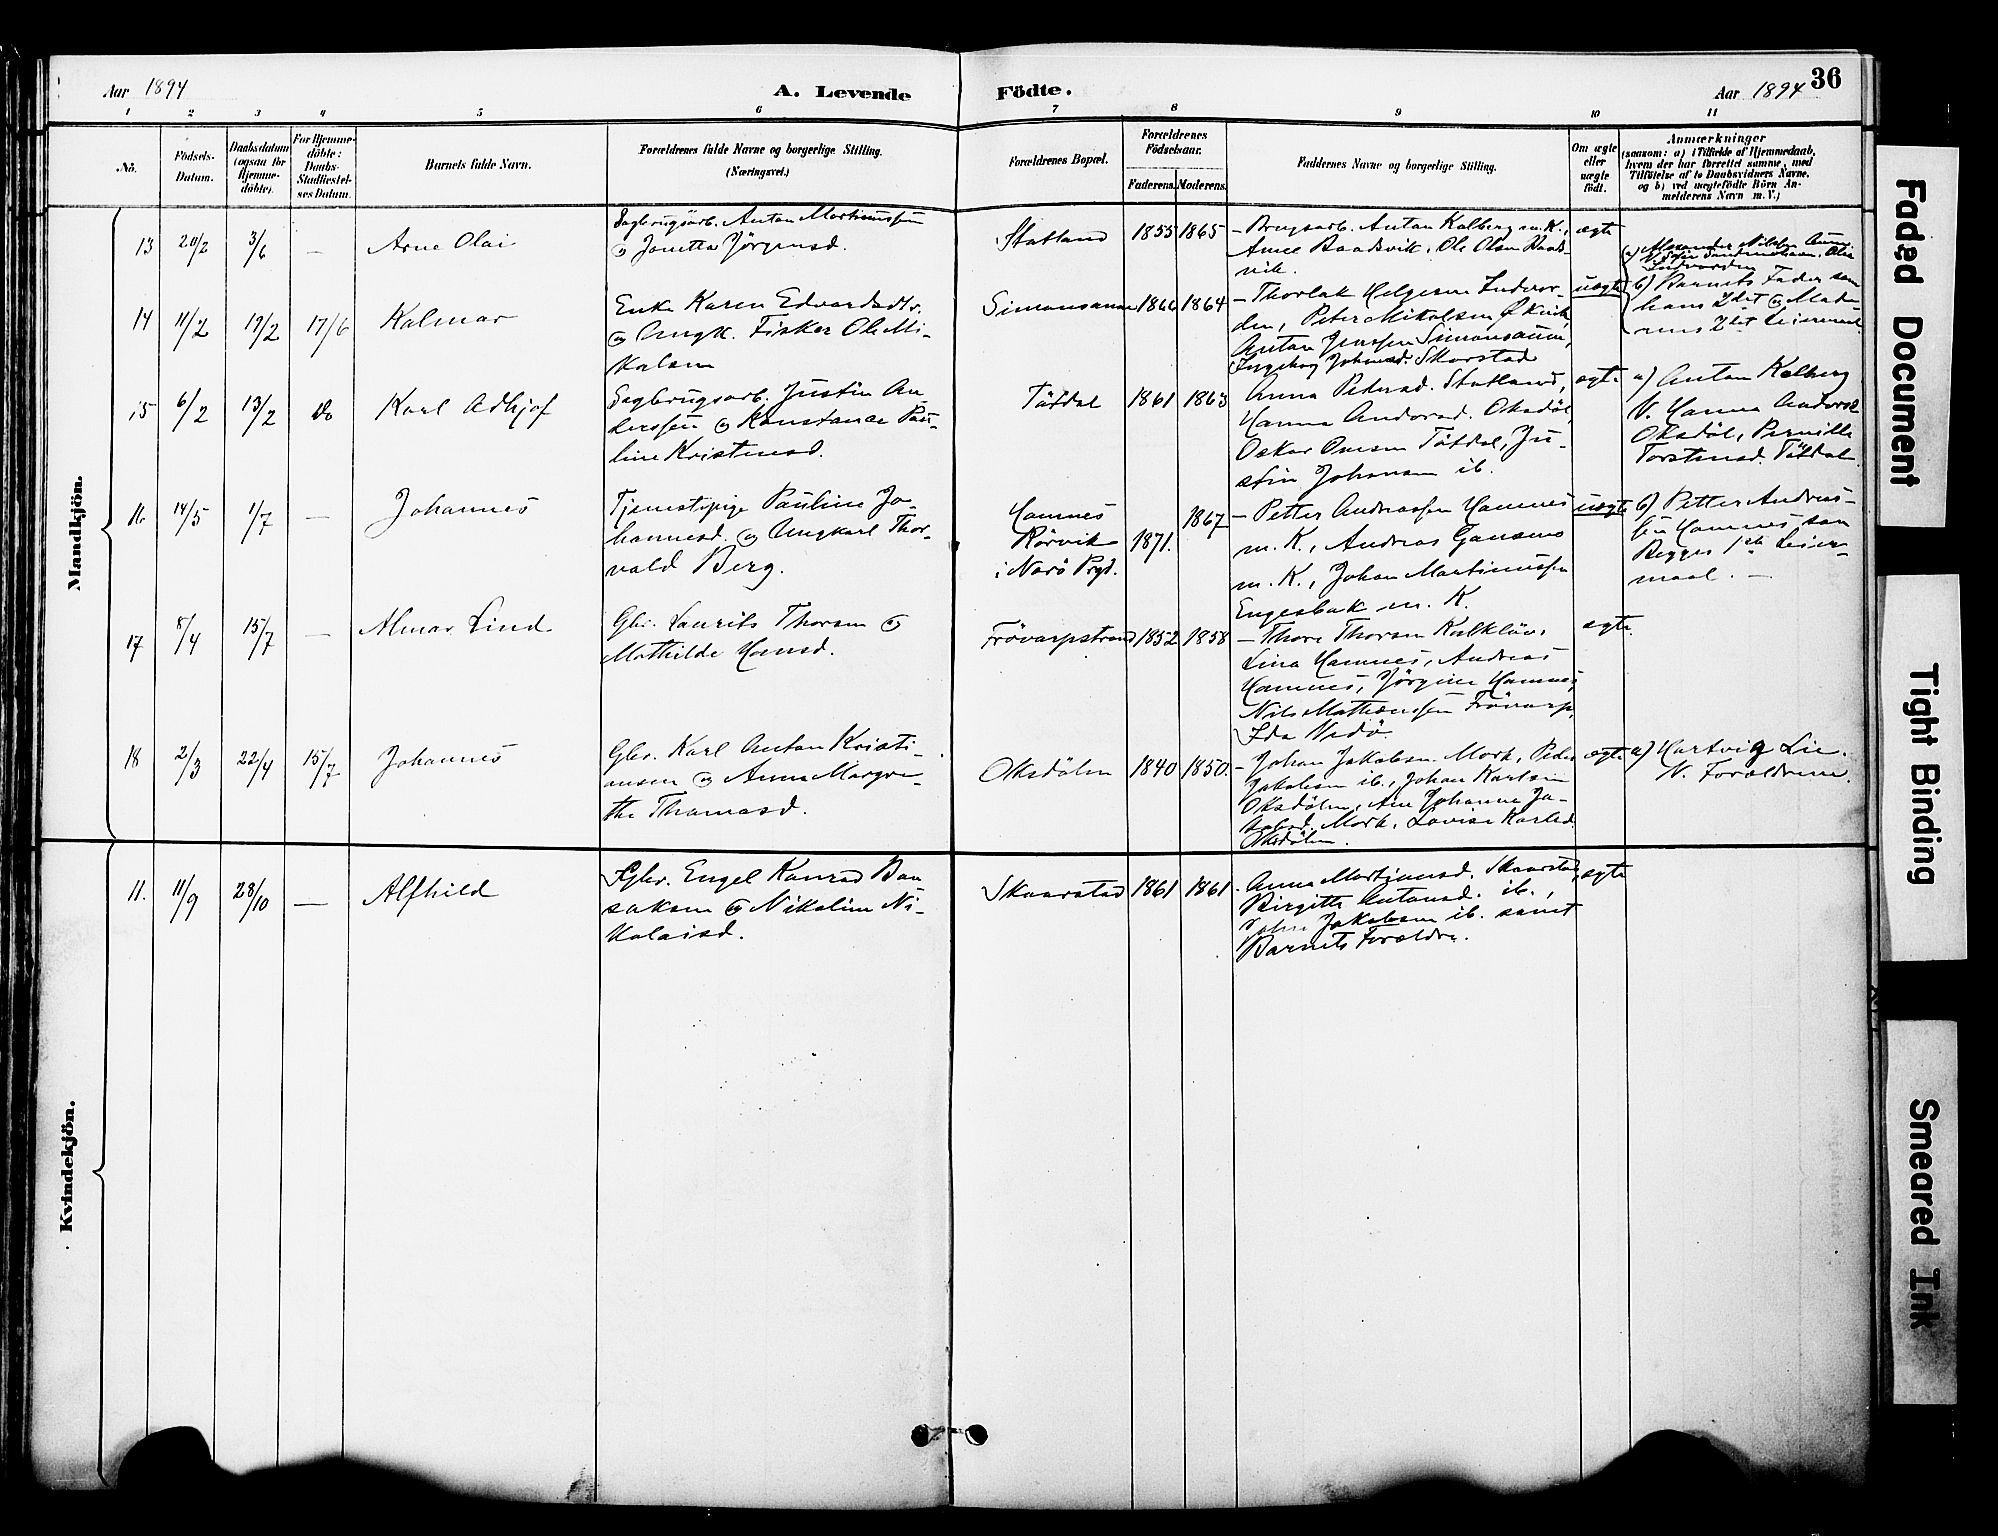 Aar 1894
A. Levende
Födte.
Aar 1894
36
1 2 3 4 5 6 7 8 9 10 11
No.
Födsels-
Datum.
Daabsdatum
(ogsaa for
Hjemme-
döbte).
For Hjemme-
döbte:
Daabs-
Stadfæstel-
ses Datum.
Barnets fulde Navn.
Forældrenes fulde Navne og borgerlige Stilling.
(Næringsvei.)
Forældrenes Bopæl.
Forældrenes
Födselsaar.
Faderens. Moderens.
Faddernes Navne og borgerlige Stilling.
Om ægte
eller
uægte
født.
Anmærkninger
(saasom: a) i Tilfælde af Hjemmedaab,
hvem der har forrettet samme, med
Tilföielse af to Daabsvidners Navne,
og b) ved uægtefödte Börn An-
melderens Navn m. V.)
Mandkjön.
13 20/2 3/6 — Arne Olai
Sagbrugsarb. Anton Martinussen
og Jonetta Jörgensd.
Statland 1855 1865
- Brugsarb. Anton Kalberg m. K.,
Anne Raadsvik, Ole Olsen Raads-
vik.
ægte
14 11/2 19/2 17/6 Kalmar
Enke Karen Edvardsdtr.
og Ungk. Fisker Ole Mi-
kalsen
Simonsaune 1866 1864
- Thorlak Helgesen Indvor-
den, Peter Mikalsen
Anton Jenssen Simonsaune,
Ingeborg Johnsd. Skarstad
uægte
b) Barnets Fader som
hans 2det og Mode-
rens 2det Leiermaal
15 6/2 13/2 do Karl Adhjof
Sagbrugsarb. Justin An-
derssen og Konstance Pau-
line Kristensd.
Tötdal 1861 1863
Anna Petersd. Statland,
Hanna Andorsd. Oksdöl,
Oskar Tötdal, Ju-
stin Johansen ib.
ægte
a) Anton Kalberg
V. Hanna Andorsd
Oksdöl, Pernille
Torstensd. Tötdal.
16 14/5 1/7 — Johannes
Tjenestepige Pauline Jo-
hannesd. og Ungkarl Thor-
vald Berg.
Hamnes
Rörvik
i Narö Prgd.
1871. 1867
- Petter Andreassen Hamnes
m. K., Andreas
m. K., Johan Martinussen
Engesbak m. K.
uægte
b) Petter Andreas-
sen Hamnes som
Begges 1ste Leier-
maal. —
17 8/4 15/7 — Almar Lind
Gbr. Laurits Thorsen og
Mathilde Hansd.
Frövarpstrand 1852 1858
- Thore Thorsen Kalklöv,
Lina Hamnes, Andreas
Hamnes, Jörgine Hamnes,
Nils Matheussen Frövarp,
Ida Vedö
ægte.
18 2/3 22/4 15/7 Johannes
Gbr. Karl Anton Kristi-
ansen og Anna Margre-
the Thomasd.
Oksdölen 1840 1850.
- Johan Jakobsen Mork, Peder
Jakobsen ib., Johan Karlsen
Oksdölen, Ane Johanna Ja-
kobsd. Mork, Lovise Karlsd.
Oksdölen.
ægte
a) Hartvig Lie.
V. Forældrene.
Kvindekjön.
11. 11/9 28/10 — Alfhild
Gbr. Engel Konrad
og Nikoline Ni-
kolaisd.
Skaarstad 1861 1861
- Anna Martinusd. Skaarstad,
Birgitte Antonsd. ib.,
John Jakobsen ib. samt
Barnets Forældre.
ægte
Faded Document
Tight Binding
Smeared Ink